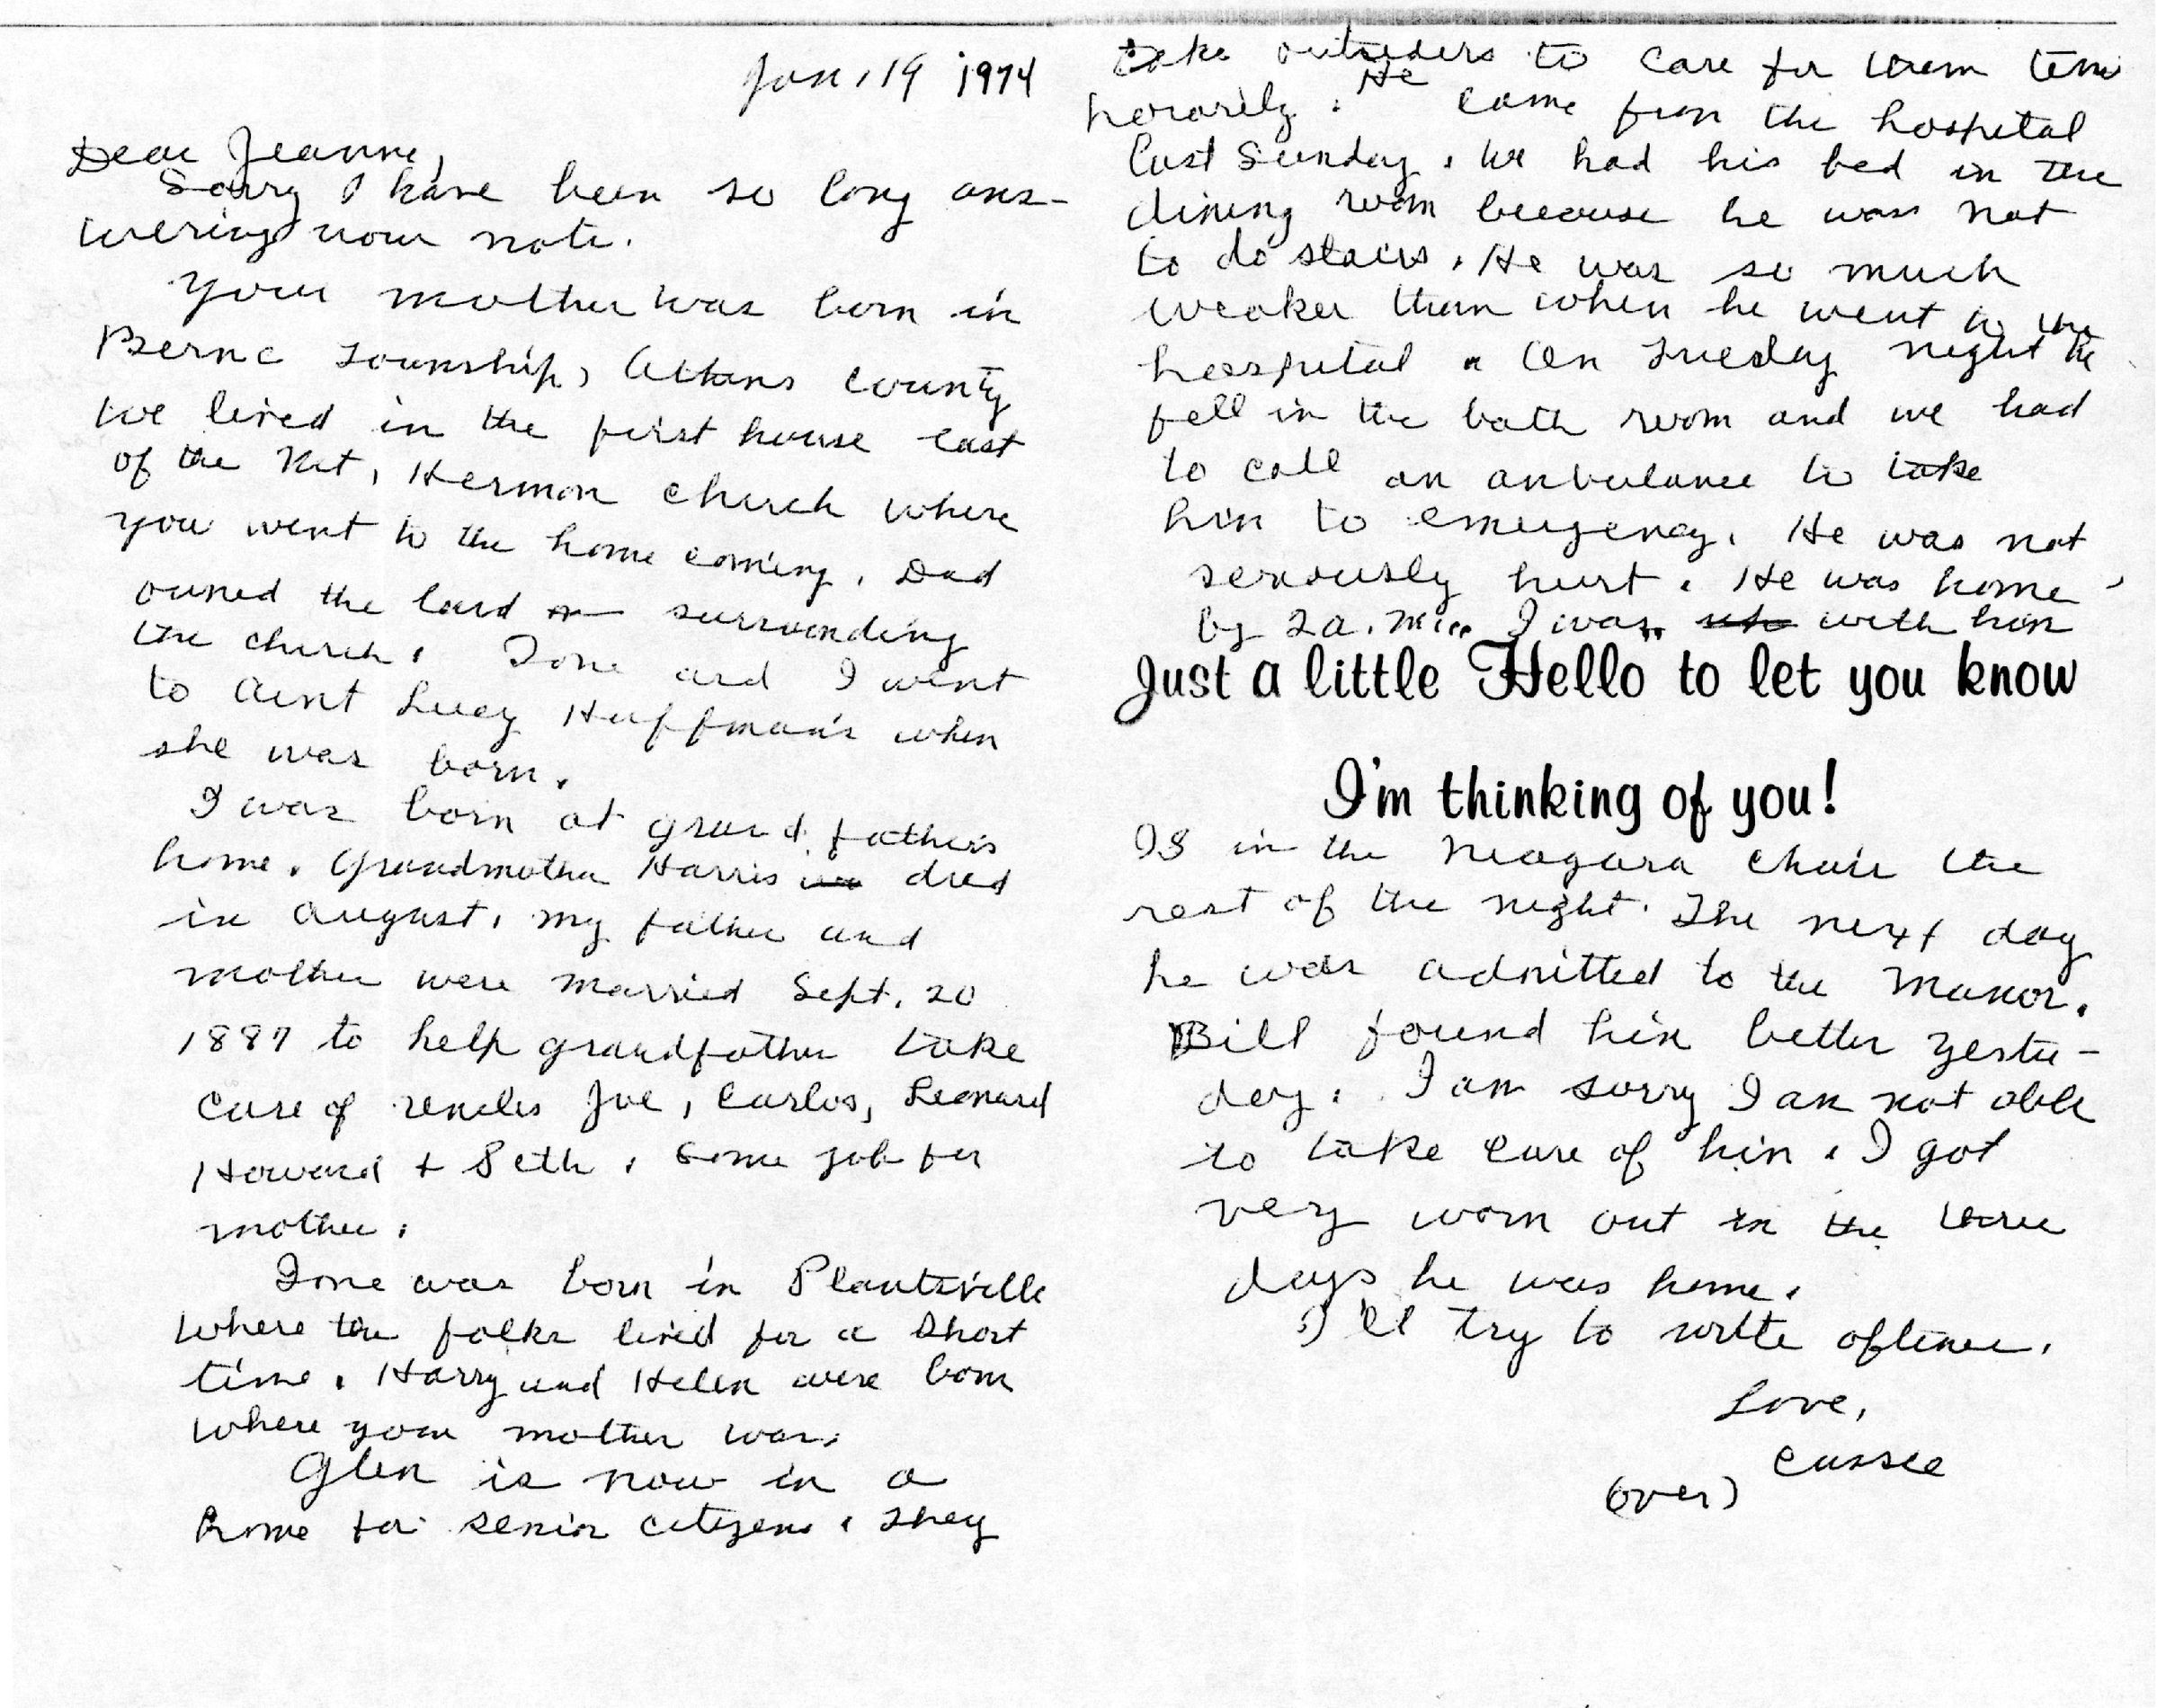 Jan, 19 1974
Dear Jeanne,
Sorry I have been so long ans-
wering your note.
Your mother was born in
Berne Township, Athens County
We lived in the first house east
of the Mt, Hermon church where
you went to the home coming. Dad
owned the land surrounding
the church. Ione and I went
to Aint Lucy Huffman's when
she was born.
I was born at grand fathers
home. Grandmother Harris died
in August, my father and
mother were married Sept. 20
1887 to help grandfather take
care of uncles Joe, Carlos, Leonard
Howard + Seth. Some job for
mother.
Ione was born in Plantsville
where the folks lived for a short
time. Harry and Helen were born
where your mother was.
Glen is now in a
home for senior citizens. They
take outsiders to care for them tem
porarily. He came from the hospital
last Sunday. We had his bed in the
dining room because he was not
to do stairs. He was so much
weaker than when he went to the
hospital. On Tuesday night he
fell in the bath room and we had
to call an anbulance to take
him to emergency. He was not
seriously hurt. He was home
by 2 a.m.. I was with him
Just a little Hello to let you know
I'm thinking of you!
IS in the Niagara chair the
rest of the night. The next day
he was admitted to the Manor.
Bill found him better yester-
day. I am sorry I am not able
to take care of him. I got
very worn out in the three
days he was home.
I'll try to write oftener.
Love,
Cassie
(over)